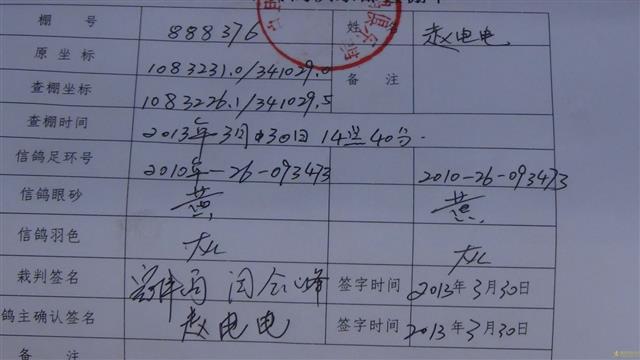 棚 号 888376 姓 名 赵电电
原坐标 1083231.0/341029.0 备 注
查棚坐标 1083226.1/341029.5
查棚时间 2013年3月30日14点40分.
信鸽足环号 2010年-26-093473 2010-26-093473
信鸽眼砂 黄 黄
信鸽羽色
裁判签名 签字时间 2013年3月30日
鸽主确认签名 赵电电 签字时间 2013年3月30日
备 注